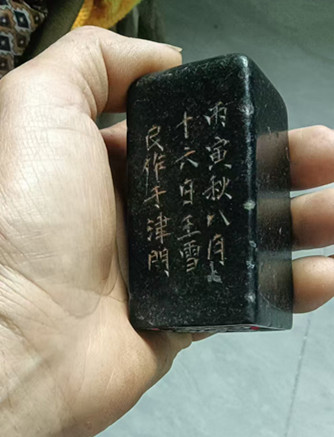 丙寅秋八月
十六日王雪
良作于津門